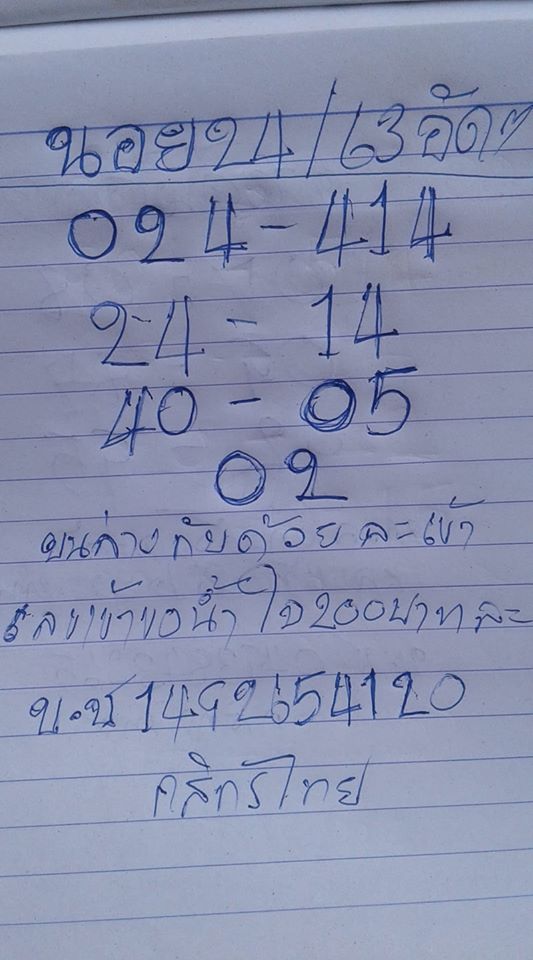 นอย24/63อัดๆ
024-414
24-14
40-05
02
บนล่างกับด้วยละเข้า
เลขเข้าขอน้ำใจ200บาทละ
บ.ช1492654120
กสิทรไทย